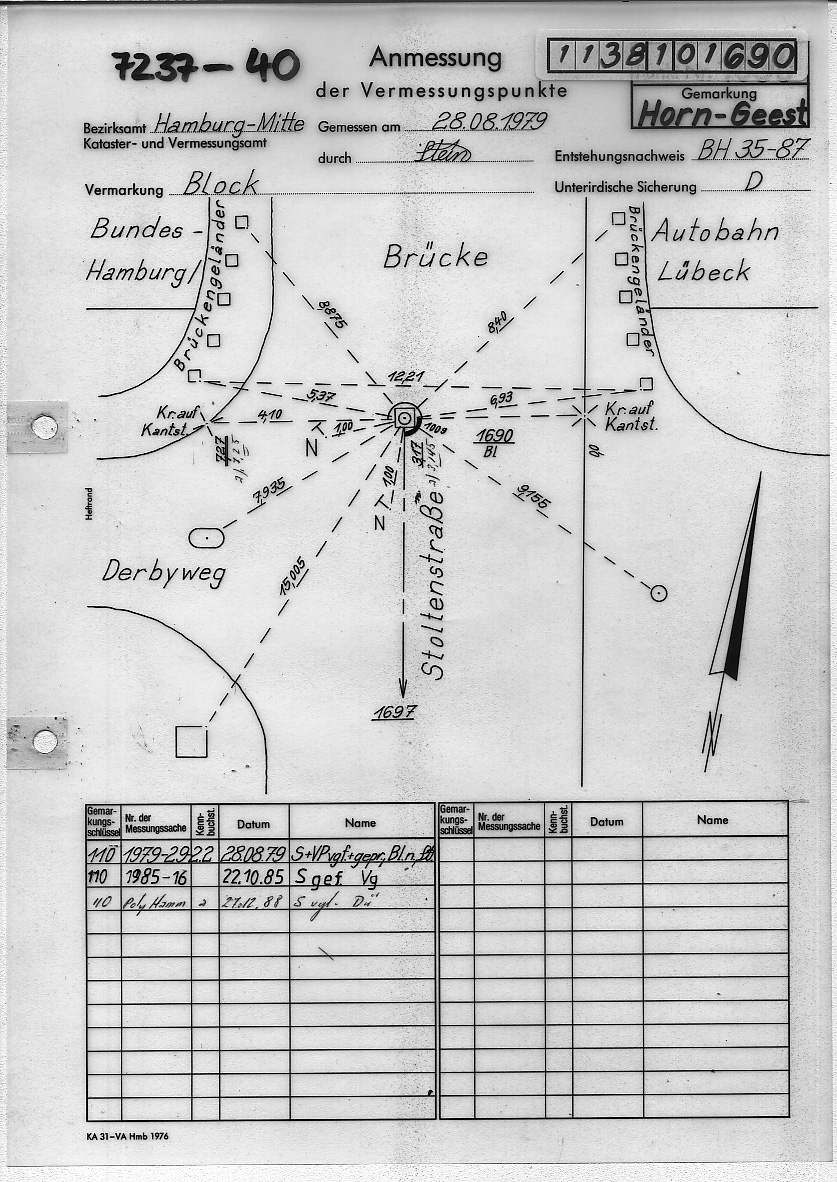 7237-40
Anmessung
der Vermessungspunkte
1138101690
Gemarkung
Horn-Geest
Bezirksamt Hamburg-Mitte
Kataster- und Vermessungsamt
Gemessen am 28.08.1979
durch
Entstehungsnachweis BH 35-87
Vermarkung Block
Unterirdische Sicherung D
Bundes-
Hamburg/
Brückengeländer
Brücke
Brückengeländer
Autobahn
Lübeck
8,875
8,40
12,21
5,37
6,93
Kr. auf
Kantst.
4,10
1,00
N
100g
1690
Bl
Kr. auf
Kantst.
7,27
3,17
1,00
N
7,935
9,155
15,005
Heftrand
Derbyweg
Stoltenstraße
1697
N
Gemar-
kungs-
schlüssel
Nr. der
Messungssache
Kenn-
buchst.
Datum
Name
Gemar-
kungs-
schlüssel
Nr. der
Messungssache
Kenn-
buchst.
Datum
Name
110 1979-29 2.2 28.08.79 S+VPvgf.+gepr., Bl.n.
110 1985-16 22.10.85 S gef. Vg
110 Poly Hamm a 27.12.88 S vgl. Dü
KA 31-VA Hmb 1976